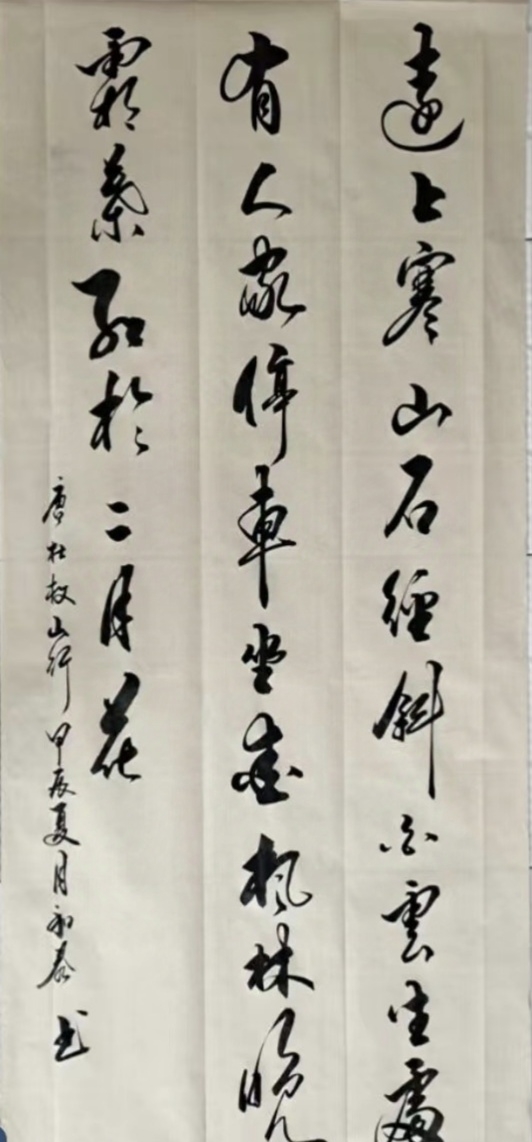 遠上寒山石徑斜白雲生處
有人家停車坐愛楓林晚
霜葉紅於二月花
唐杜牧山行甲辰夏月和春書